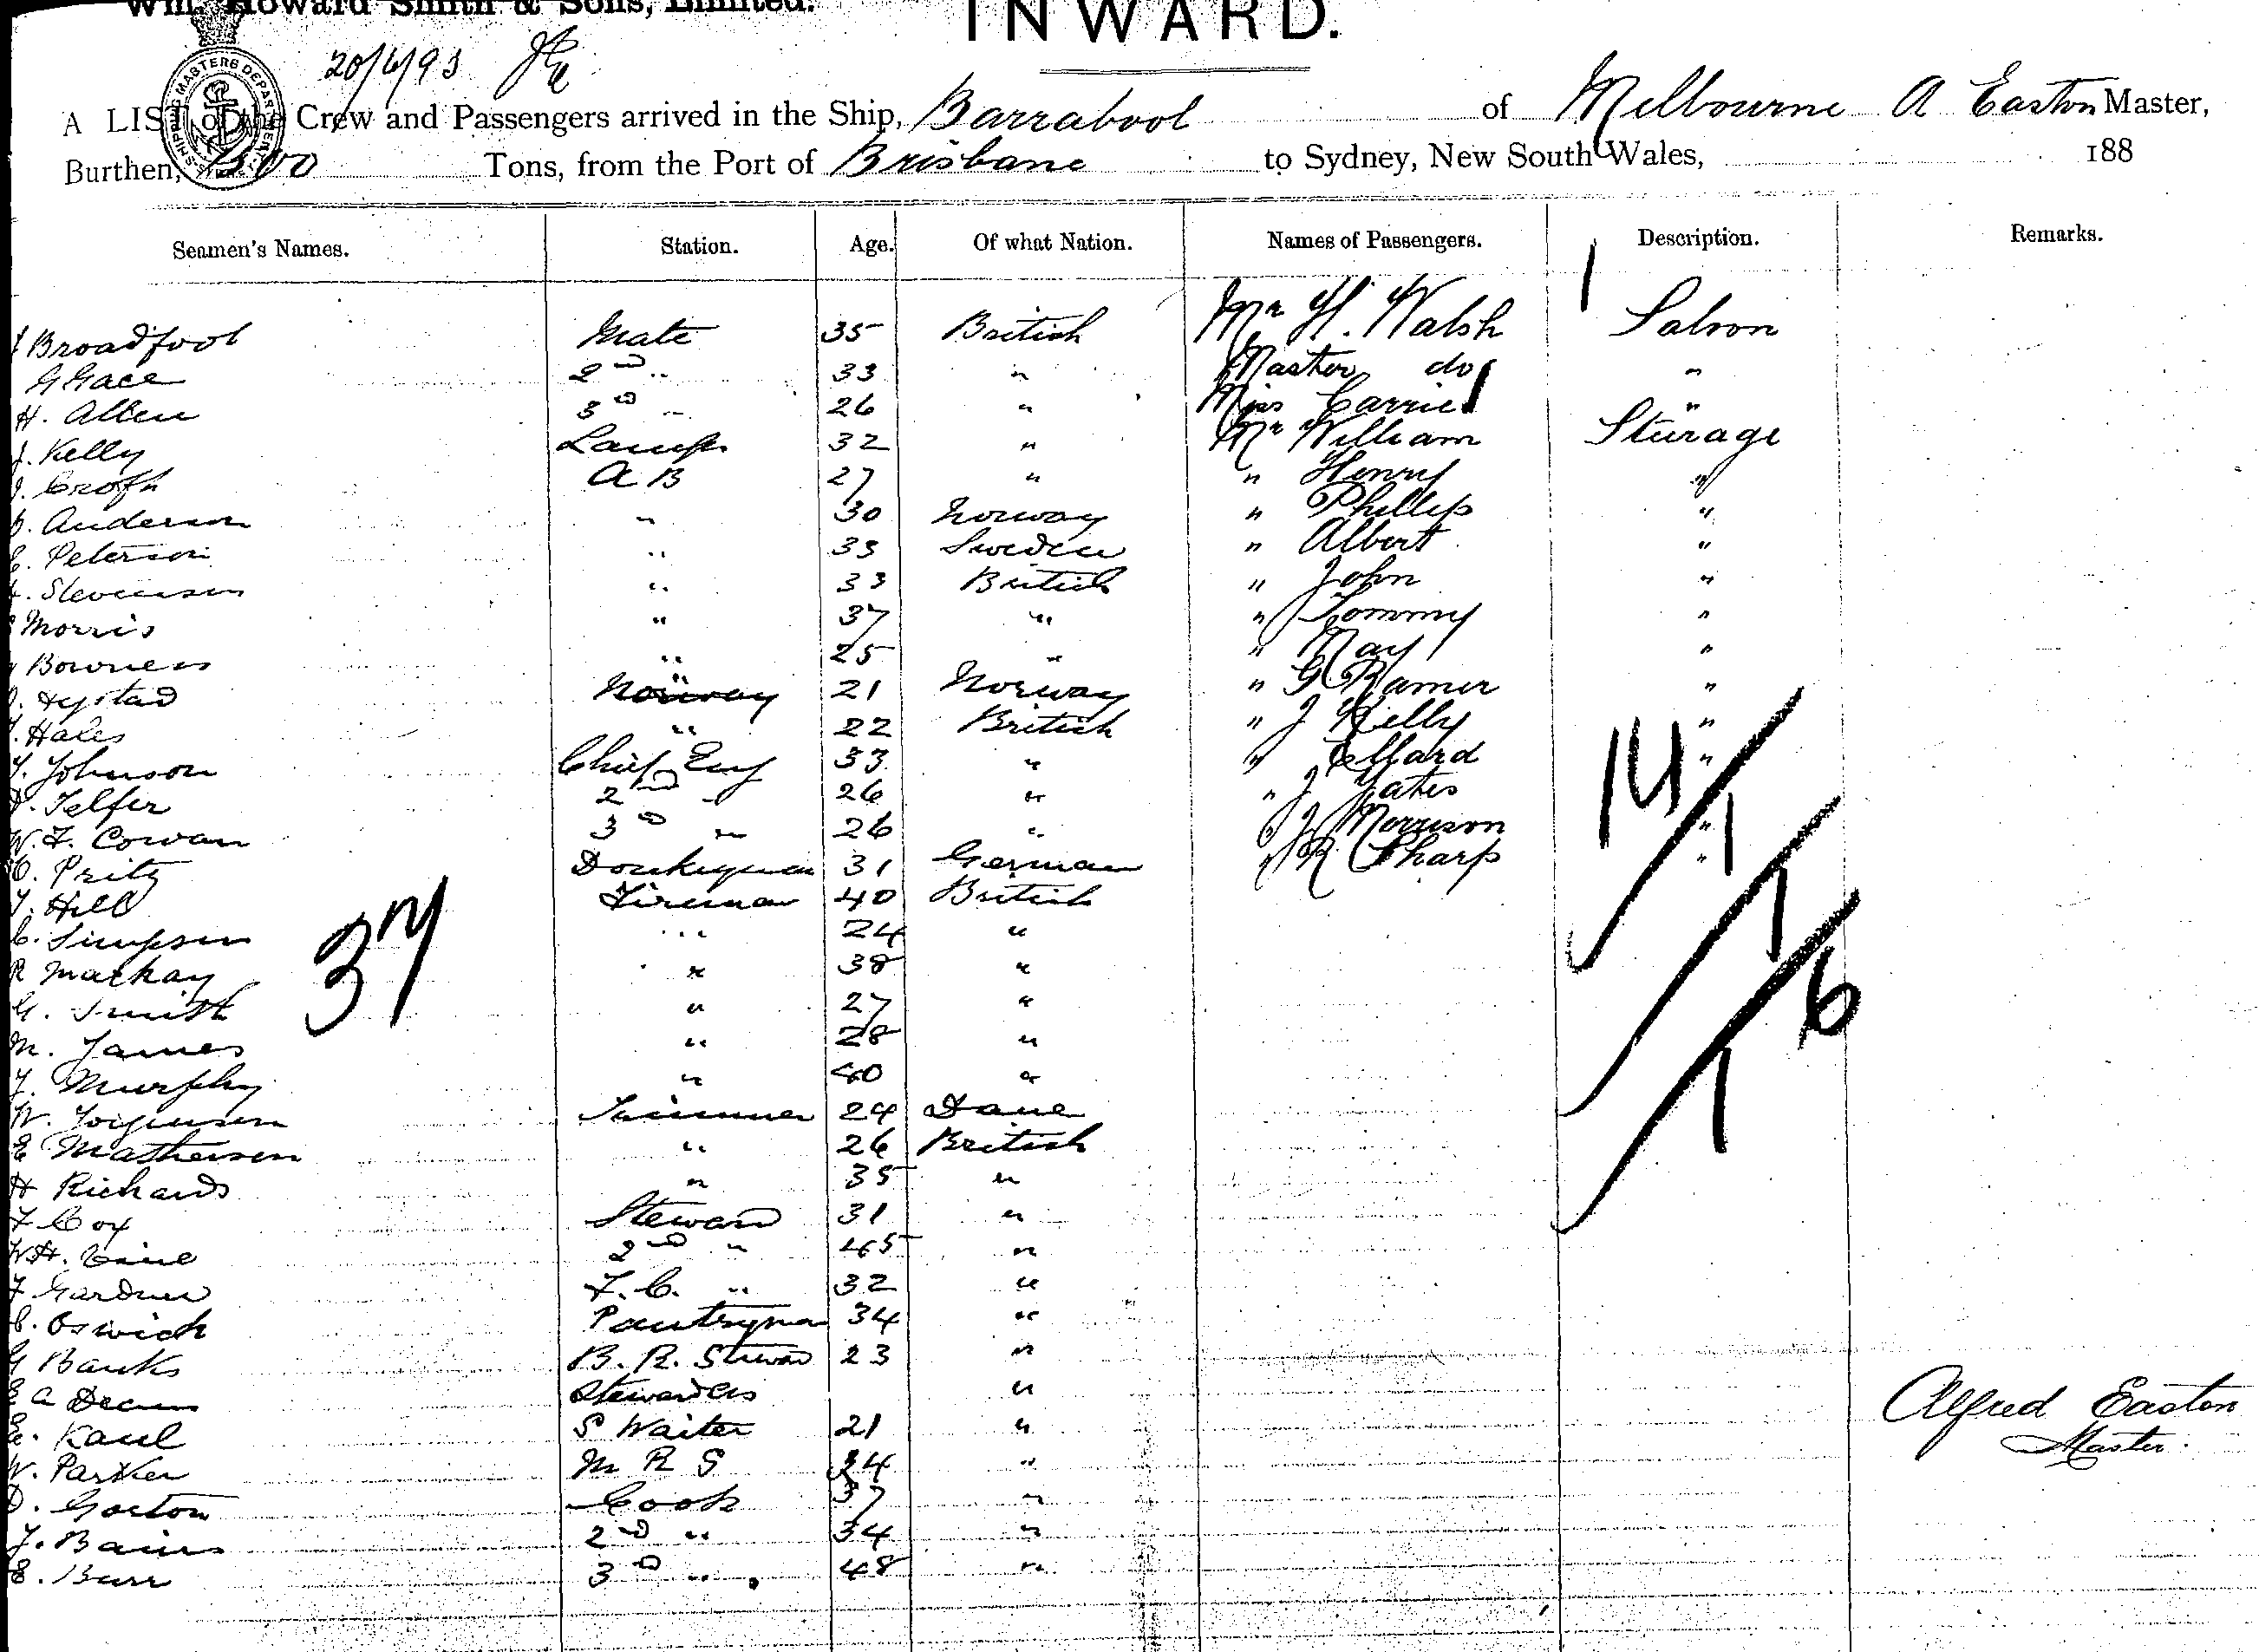 Wm. Howard Smith & Sons, Limited.
INWARD.
20/6/93
SHIPPING MASTERS DEPARTMENT
A LIST of the Crew and Passengers arrived in the Ship, Barrabool of Melbourne A Easton Master,
Burthen, Tons, from the Port of Brisbane to Sydney, New South Wales, 188
Seamen's Names. Station. Age. Of what Nation. Names of Passengers. Description. Remarks.
Broadfoot Mate 35 British Mr H. Walsh 1 Saloon
G Grace 2nd " 33 " Master do "
H. Allen 3rd " 26 " Miss Carrie "
J. Kelly Lamps 32 " Mr William Sturage
J. Croft A B 27 " " Henry "
Anderson " 30 Norway " Phillip "
Peterson " 33 Sweden " Albert "
Stevenson " 33 British " John "
Morris " 37 " " Tommy "
Bowness " 25 " " May "
Hystad Norway 21 Norway " G Ramer "
Hales " 22 British " J Kelly "
Johnson Chief Eng 33 " " "
Telfer 2nd " 26 " " J Yates
W. F. Cowan 3rd " 26 " " J Morrison "
Pritz Donkeyman 31 German " R Sharp "
Hill Fireman 40 British
C. Simpson " 24 "
R Mackay " 38 "
G. Smith " 27 "
M. James " 28 "
Murphy " 40 "
W. Jorgensen Trimmer 24 Dane
E Mathewson " 26 British
H Richards " 35 "
F Cox Steward 31 "
W.H. 2nd " 45 "
F Gardner F. C. " 32 "
C. Oswick Pantryman 34 "
G Banks B. R. Steward 23 "
E A Stewardess "
E. Kaul S Waiter 21 "
W. Parker M R S 24 "
D. Gorton Cook 37 "
Bains 2nd " 34 "
E. Burr 3rd " 48 "
37
14
1
1
6
1
Alfred Easton
Master